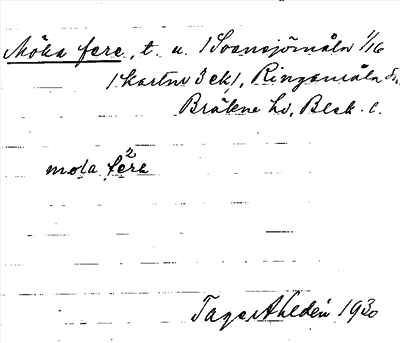 Möka fere, t. u. 1 Svensjömåla 1/16
1 kartnr 3 ek1, Ringamåla Sn.
Bräkne hd, Blek. l.
mola fere
2
Tage Ahldén 1930